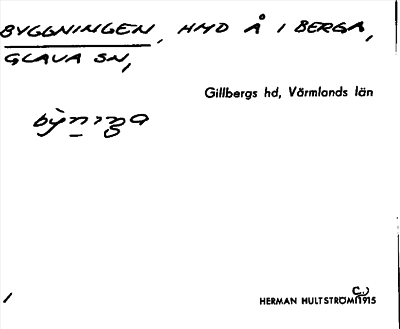 BYGGNINGEN, HMD Å I BERGA,
GLAVA SN,
Gillbergs hd, Värmlands län
bỳniŋa
HERMAN HULTSTRÖM 1915